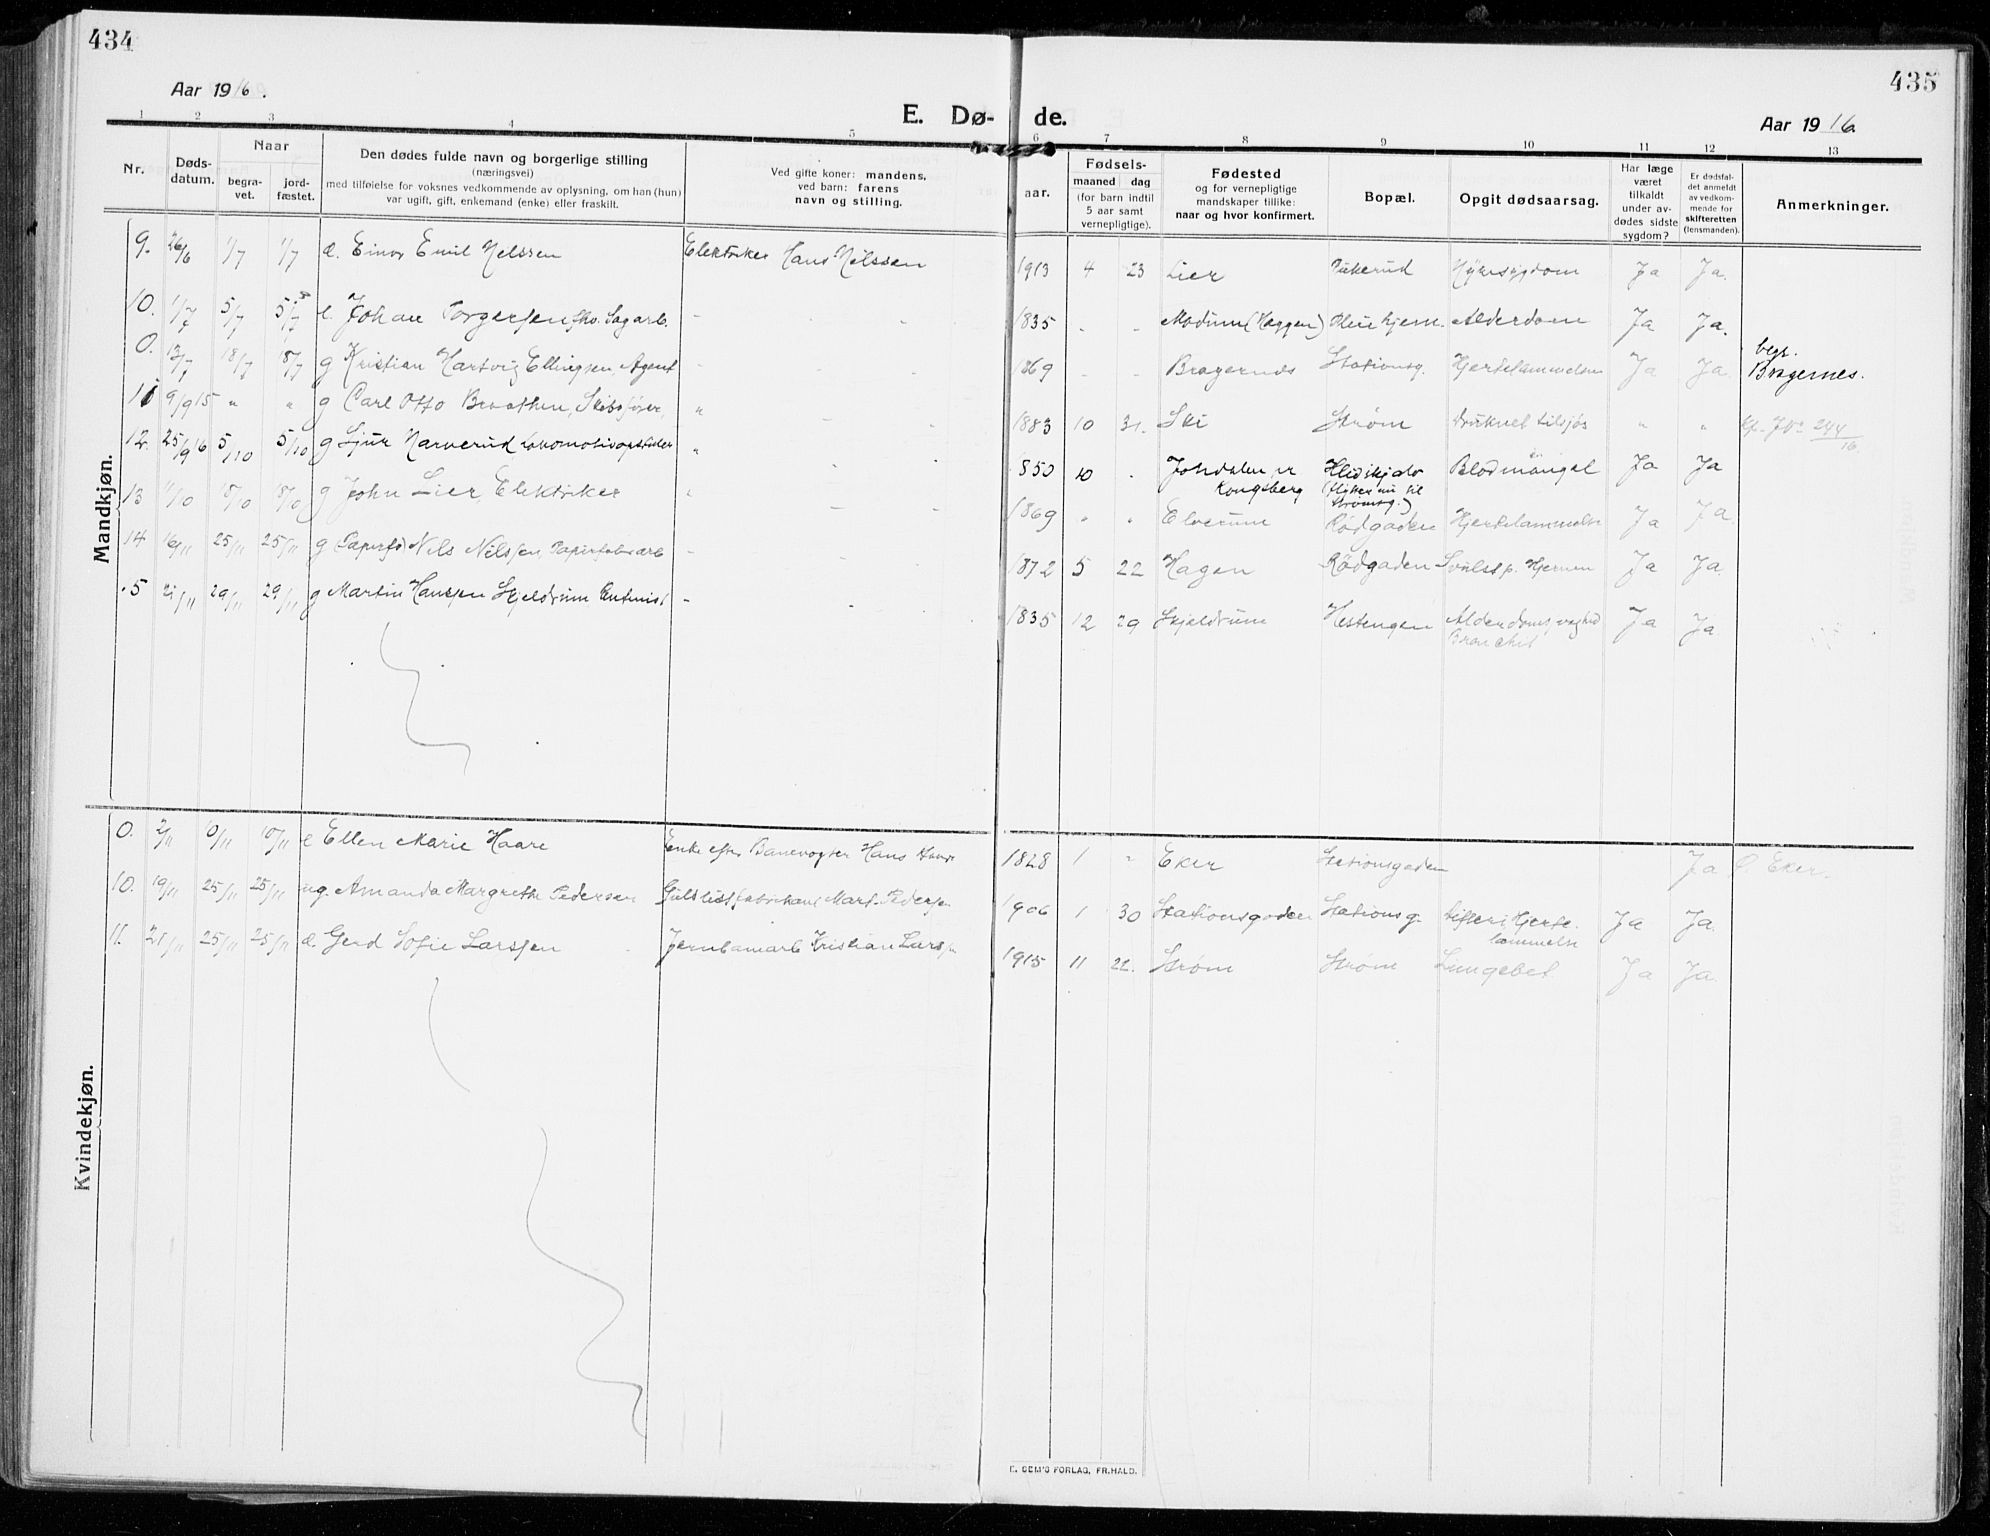 434
Aar 1916.
E. Dø-
1 2 3 4 5
Nr.
Døds-
datum.
Naar
begra-
vet.
jord-
fæstet.
Den dødes fulde navn og borgerlige stilling
(næringsvei)
med tilføielse for voksnes vedkommende av oplysning, om han (hun)
var ugift, gift, enkemand (enke) eller fraskilt.
Ved gifte koner: mandens,
ved barn: farens
navn og stilling.
Mandkjøn.
9. 26/6 1/7 1/7 Einar Emil Nelssen Elektriker Hans Nilssen
10. 1/7 5/7 5/7 e. Johan Torgersen fhv. Sagarb. -
0. 13/7 18/7 18/7 g Kristian Hartvig Ellingsen, Agent
11 9/9 15 " " g Carl Otto Braathen, Skibsfører, "
12. 25/9 16 5/10 5/10 g Sjur Narverud Lokomotivopsider "
13 11/10 18/10 18/10 g John Lier Elektriker "
14 16/11 25/11 25/11 g Nils Nilssen, Papirfabrarb -
5 21/11 29/11 29/11 g Martin Hanssen Skjeldrum -
Kvindekjøn.
0. 2/11 10/11 10/11 e Ellen Marie Haare Enke efter Banevogter Hans
10. 19/11 25/11 25/11 ug. Amanda Margrethe Pedersen Guldlistfabrikant Mart. Pedersen
11. 21/11 25/11 25/11 Gerd Sofie Larssen Jernbanarb Kristian Larss
435
Aar 1916.
de.
6 7 8 9 10 11 12 13
aar.
Fødsels-
maaned dag
(for barn indtil
5 aar samt
vernepligtige).
Fødested
og for vernepligtige
mandskaper tillike:
naar og hvor konfirmert.
Bopæl.
Opgit dødsaarsag.
Har læge
været
tilkaldt
under av-
dødes sidste
sygdom?
Er dødsfal-
det anmeldt
av vedkom-
mende for
skifteretten
(lensmanden).
Anmerkninger.
1913 4 23 Lier Nyresygdom Ja Ja.
1835 - - Modum (Heggen) Pleiehjem. Alderdom Ja Ja.
1869 - - Bragernes Stationsg. Hjertelammelse Ja Ja. begr.
Bragernes.
1883 10 31. Ski Strøm druknet tilsjøs " " Kp. J No 244/16
1850 10 . Johdalen v. Blodmangel Ja Ja
Kongsberg (flyttet nu til
Strømsg.)
1869 " " Elverum Rødgaden Hjertelammelse Ja Ja.
1872 5 22 Hagen Rødgaden Svulst p. Hjernen Ja Ja.
1835 12 29 Skjeldrum Hestengen Alderdomssvaghed Ja Ja
Bronchit
1828 1 " Eker Stationsgaden Ja Ø. Eker.
1906 1 30 Stationsgaden Stationsg. Difteri, Hjerte- Ja Ja.
lammelse
1915 11 22. Strøm Strøm Lungebet. Ja Ja.
E. SEM'S FORLAG, FR.HALD.